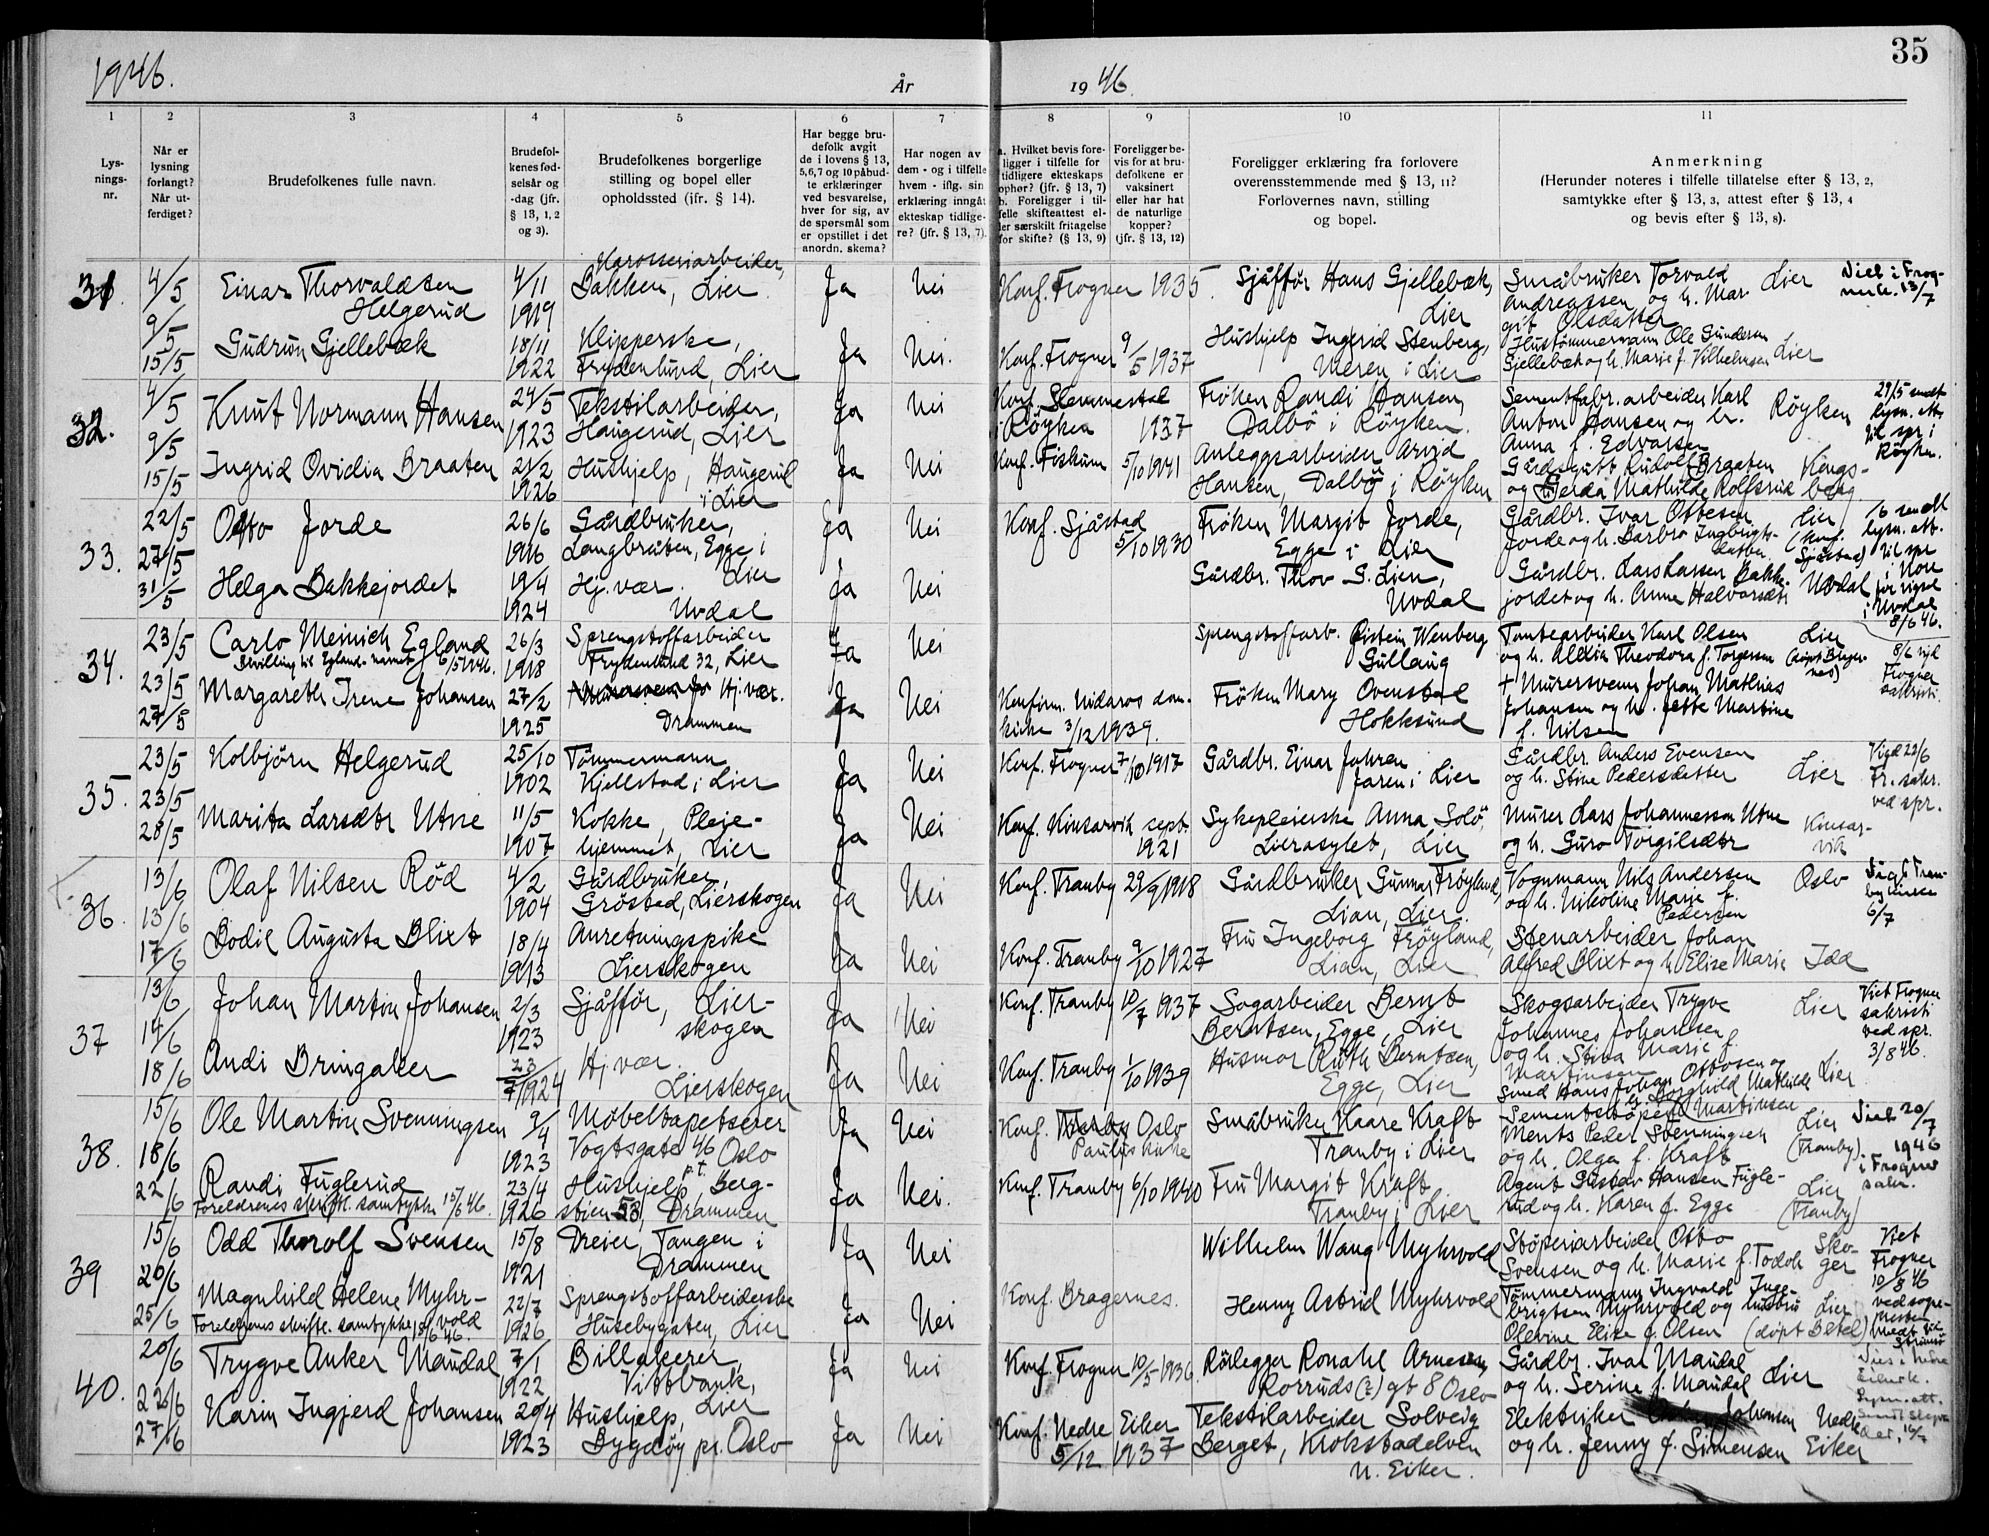 1946.
År
19 46.
35
1
2
3
4
5
6
7
8
9
10
11
Lys-
nings-
nr.
Når er
lysning
forlangt?
Når ut-
ferdiget?
Brudefolkenes fulle navn.
Brudefol-
kenes fød-
selsår og
-dag (jfr.
§ 13, 1, 2
og 3).
Brudefolkenes borgerlige
stilling og bopel eller
opholdssted (jfr. § 14).
Har begge bru-
defolk avgit
de i lovens § 13,
5, 6, 7 og 10 påbud-
te erklæringer
ved besvarelse,
hver for sig, av
de spørsmål som
er opstillet i det
anordn. skema?
Har nogen av
dem - og i tilfelle
hvem - iflg. sin
erklæring inngåt
ekteskap tidlige-
re? (jfr. § 13, 7).
a. Hvilket bevis fore-
ligger i tilfelle for
tidligere ekteskaps
ophør? (jfr. § 13, 7)
b. Foreligger i til-
felle skifteattest el-
ler særskilt fritagelse
for skifte? (§ 13, 9)
Foreligger be-
vis for at bru-
defolkene er
vaksinert
eller har hat
de naturlige
kopper?
(jfr. § 13, 12)
Foreligger erklæring fra forlovere
overensstemmende med § 13, 11?
Forlovernes navn, stilling
og bopel.
Anmerkning
(Herunder noteres i tilfelle tillatelse efter § 13, 2,
samtykke efter § 13, 3, attest efter § 13, 4
og bevis efter § 13, 8).
31.
4/5
9/5
15/5
Einar Thorvaldsen
Helgerud
4/11
1919
Karosseriarbeider,
Bakken, Lier
Ja
Nei
Konf. Frogner 1935.
Sjåffør Hans Gjellebæk,
Lier
Småbruker Torvald
Andreassen og h. Mar-
git Olsdatter
Lier
Viet i Frog-
ner k. 13/7
Gudrun Gjellebæk
18/11
1922
Klipperske,
Frydenlund, Lier
Ja
Nei.
Konf. Frogner 9/5 1937
Hushjelp Ingerid Stenberg,
Meren i Lier
Hustømmermann Ole Gundersen
Gjellebæk og h. Marie f. Vilhelmsen Lier
32.
4/5
9/5
15/5
Knut Normann Hansen
24/5
1923
Tekstilarbeider,
Haugerud, Lier
Ja
Nei
Konf. Slemmestad
i Røyken 1937
Frøken Randi Hansen,
Dalbö i Røyken.
Sementfabr. arbeider Karl
Anton Hansen og h.
Anna f. Edvarsen
Røyken
29/5 sendt
lysn. att.
til spr i
Røyken.
Ingrid Ovidia Braaten
21/2
1926
Hushjelp, Haugerud
i Lier
Ja
Nei
Konf. Fiskum 5/10 1941
Anleggsarbeider Arvid
Hansen, Dalbö i Røyken
Gårdsgutt Rudolf Braaten
og Gerda Mathilde Rolfsrud
Kongs-
berg
33.
22/5
27/5
31/5
Otto Jorde
26/6
1916
Gårdbruker,
Langbråten, Egge i
Lier
Ja
Nei
Konf. Sjåstad
5/10 1930
Frøken Margit Jorde,
Egge i Lier
Gårdbr. Ivar Ottesen
Jorde og h. Barbro Ingbrigts-
datter
Lier
(konf.
Sjåstad)
/6 sendt
lysn. att.
til spr
i Nore
før vigsel
i Uvdal
8/6 46.
Helga Bakkejordet
19/4
1924
Hj. vær.
Uvdal
Ja
Nei
Gårdbr. Thov S. Lien,
Uvdal
Gårdbr. Lars Larsen Bakke-
jordet og h. Anne Halvorsdtr
Uvdal
34.
23/5
23/5
27/5
Carlo Meinich Egland
Bevilling til Egland-navnet 6/5 1946.
26/3
1918
Sprengstoffarbeider
Frydenlund 32, Lier
Ja
Nei
Sprengstoffarb. Øistein Wenberg
Gullaug
Tomtearbeider Karl Olsen
og h. Alexia Theodora f. Torgersen
Lier
(døpt Brager-
nes)
8/6 vigd
Frogner
sakristi.
Margareth Irene Johansen
27/2
1925
Hj. vær.
Drammen
Ja
Nei
Konfirm. Nidaros dom-
kirke 3/12 1939.
Frøken Mary Ovenstad
Hokksund
+ Murersvenn Johan Mathias
Johansen og h. Jette Martine
f. Nilsen
35.
23/5
23/5
28/5
Kolbjørn Helgerud
25/10
1902
Tömmermann
Kjellstad i Lier
Ja
Nei
Konf. Frogner 7/10 1917
Gårdbr. Einar Johren
Jaren i Lier
Gårdbr. Anders Evensen
og h. Stine Pedersdatter
Lier
Vigd 22/6
Fr. sakr.
ved spr.
Marita Larsdtr Utne
11/5
1907
Kokke, Pleie-
hjemmet, Lier
Ja
Nei
Konf. Kinsarvik sept.
1921
Sykepleierske Anna Solö,
Lierasylet, Lier
Murer Lars Johannesson Utne
og h. Guro Torgilsdtr
Kinsar-
vik
36.
13/6
13/6
17/6
Olaf Nilsen Röd
4/2
1904
Gårdbruker,
Gröstad, Lierskogen
Ja
Nei
Konf. Tranby 29/9 1918
Gårdbruker Gunnar Frøyland,
Lian, Lier.
Vognmann Nils Andersen
og h. Nikoline Marie f.
Pedersen
Oslo
Vigd Tran-
by kirke
6/7
Bodil Augusta Blixt
18/4
1913
Anretningspike
Lierskogen
Ja
Nei
Konf. Tranby 9/10 1927
Fru Ingeborg Frøyland,
Lian, Lier
Stenarbeider Johan
Alfred Blixt og h. Elise Marie
Idd
37
13/6
14/6
18/6
Johan Martin Johansen
2/3
1923
Sjåffør, Lier-
skogen
Ja
Nei
Konf. Tranby 10/7 1937
Sagarbeider Bernt
Berntsen, Egge, Lier
Skogsarbeider Trygve
Johannes Johansen
og h. Stina Marie f.
Martinsen
Lier
Viet Frogner
sakristi
ved spr.
3/8 46.
Andi Bringaker
23/7 1924
Hj. vær.
Lierskogen
Ja
Nei
Konf. Tranby 1/10 1939
Husmor Ruth Berntsen,
Egge, Lier
Smed Hans Johan Ottosen og
h. Borghild Mathilde
Martinsen
Lier
38.
15/6
18/6
22/6
Ole Martin Svenningsen
9/4
1923
Møbeltapetserer
Vogtsgate 46 Oslo
Ja
Nei
Konf. Oslo
Paulus kirke
Småbruker Kaare Kraft
Tranby i Lier
Sementstöper
Ments Peder Svenningsen
og h. Olga f. Kraft
Lier
(Tranby).
Viet 20/7
1946
i Frogner
sakr.
Randi Fuglerud
Foreldrenes skriftl. samtykke 15/6 46.
23/4
1926
Hushjelp p.t. Berg-
stien 53, Drammen
Ja
Nei.
Konf. Tranby 6/10 1940
Fru Margit Kraft
Tranby i Lier
Agent Gustav Hansen Fugle-
rud og h. Karen f. Egge
Lier
(Tranby)
39
15/6
20/6
25/6
Odd Thorolf Svensen
15/8
1921
Dreier, Tangen i
Drammen
Ja
Nei
Wilhelm Wang Myhrvold
Støperiarbeider Otto
Svensen og h. Marie f. Todoh
Sko-
ger
Viet
Frogner
10/8 46
ved sogne-
presten
Magnhild Helene Myhr-
vold
Foreldrenes skriftl. samtykke 15/6 46.
22/7
1926
Sprengstoffarbeiderske
Husebygaten, Lier
Ja
Nei
Konf. Bragernes.
Henny Astrid Myhrvold
Tømmermann Ingvald Inge-
brigtsen Myhrvold og hustru
Olevine Elise f. Olsen
Lier
(døpt Betel)
40.
20/6
22/6
27/6
Trygve Anker Maudal
7/1
1922
Billakerer,
Vittbank,
Lier
Ja
Nei
Konf. Frogner 10/5 1936.
Rörlegger Ronald Arnesen,
Rorruds(?) gt 8 Oslo
Gårdbr. Ivar Maudal
og h. Serine f. Maudal
Lier
Vies i Nedre
Eiker k.
Lysn. att.
Karin Ingjerd Johansen
20/4
1923
Hushjelp,
Bygdøy pr. Oslo
Ja
Nei
Konf. Nedre Eiker
5/12 1937
Tekstilarbeider Solveig
Berget, Krokstadelven
N. Eiker.
Elektriker Johansen
og h. Jenny f. Simensen
Nedre
Eiker